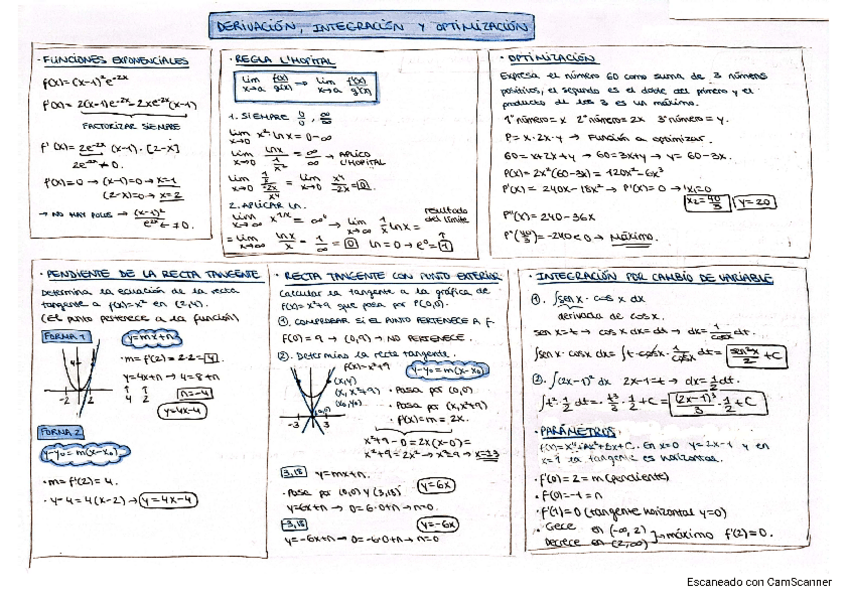 DERIVACIÓN, INTEGRACIÓN Y OPTIMIZACIÓN
· FUNCIONES EXPONENCIALES
f(x)= (x-1)²e^-2x
f'(x)= 2(x-1)e^-2x - 2xe^-2x (x-1)
FACTORIZAR SIEMPRE
f'(x)= 2e^-2x (x-1) · [2-x]
2e^-2x ≠ 0.
f'(x)=0 → (x-1)=0 → x=1
(2-x)=0 → x=2
→ NO HAY POLOS →
· REGLA L'HOPITAL
lim x→a f(x)/g(x) → lim x→a f'(x)/g'(x)
1. SIEMPRE 0/0, ∞/∞
lim x→0 x²·lnx = 0·-∞
lim x→0 lnx / 1/x² = ∞/∞ → APLICO L'HOPITAL
lim x→0 1/x / -2x/x⁴ = lim x→0 x⁴/-2x = 0.
2. APLICAR LN.
lim x→∞ x^1/x = ∞⁰ → lim x→∞ 1/x lnx =
= lim x→∞ lnx/x = 1/∞ = 0 ln=0 → e⁰ = 1
resultado del límite
· OPTIMIZACIÓN
Expresa el número 60 como suma de 3 números
positivos, el segundo es el doble del primero y el
producto de los 3 es un máximo.
1º número = x 2º número = 2x 3º número = y.
P = x·2x·y → Función a optimizar.
60 = x+2x+y → 60=3x+y → y= 60-3x.
P(x) = 2x²(60-3x) = 120x² - 6x³
P'(x) = 240x - 18x² → P'(x)=0 → x₁=0
x₂=40/3 y=20
P''(x) = 240-36x
P''(40/3) = -240<0 → Máximo.
· PENDIENTE DE LA RECTA TANGENTE
Determina la ecuación de la recta
tangente a f(x)=x² en (2,4).
(El punto pertenece a la función)
FORMA 1
y=mx+n
· m= f'(2) = 2·2 = 4
y=4x+n → 4=8+n
4 2
n=-4
y=4x-4
-2 2
FORMA 2
y-y₀=m(x-x₀)
· m= f'(2) = 4.
· y-4 = 4(x-2) → y=4x-4
· RECTA TANGENTE CON PUNTO EXTERIOR
Calcular la tangente a la gráfica de
f(x)=x²+9 que pasa por P(0,0).
①. COMPROBAR SI EL PUNTO PERTENECE A f
f(0) = 9 → (0,9) → NO PERTENECE.
②. Determino la recta tangente.
f(x)=x²+9
y-y₀=m(x-x₀)
(x,y)
(x, x²+9)
(x₀,y₀)
· Pasa por (0,0)
· Pasa por (x,x²+9)
· f'(x)=m = 2x.
-3 3
x²+9-0 = 2x(x-0) =
x²+9 = 2x² → x²=9 →
3,18 y=mx+n.
· Pasa por (0,0) y (3,18) y=6x
y=6x+n → 0=6·0+n → n=0.
-3,18 y=-6x
y=-6x+n → 0=-6·0+n → n=0
· INTEGRACIÓN POR CAMBIO DE VARIABLE
①. ∫sen x · cos x dx
derivada de cos x.
sen x=t → cos x dx=dt → dx= 1/cosx dt.
∫sen x · cos x dx = ∫t·cosx · 1/cosx dt = sen²x/2 + C
②. ∫(2x-1)² dx 2x-1=t → dx= 1/2 dt.
∫t²·1/2 dt = t³/3 · 1/2 + C = (2x-1)³/3 · 1/2 + C
· PARÁMETROS
en x=0 y=2x-1 y en
x=1 la tangente es horizontal.
· f'(0) = 2 = m (pendiente)
· f(0)=-1 = n
· f'(1)=0 (tangente horizontal y=0)
· Crece en (-∞, 2)
Decrece en (2,∞) → máximo f'(2)=0.
Escaneado con CamScanner